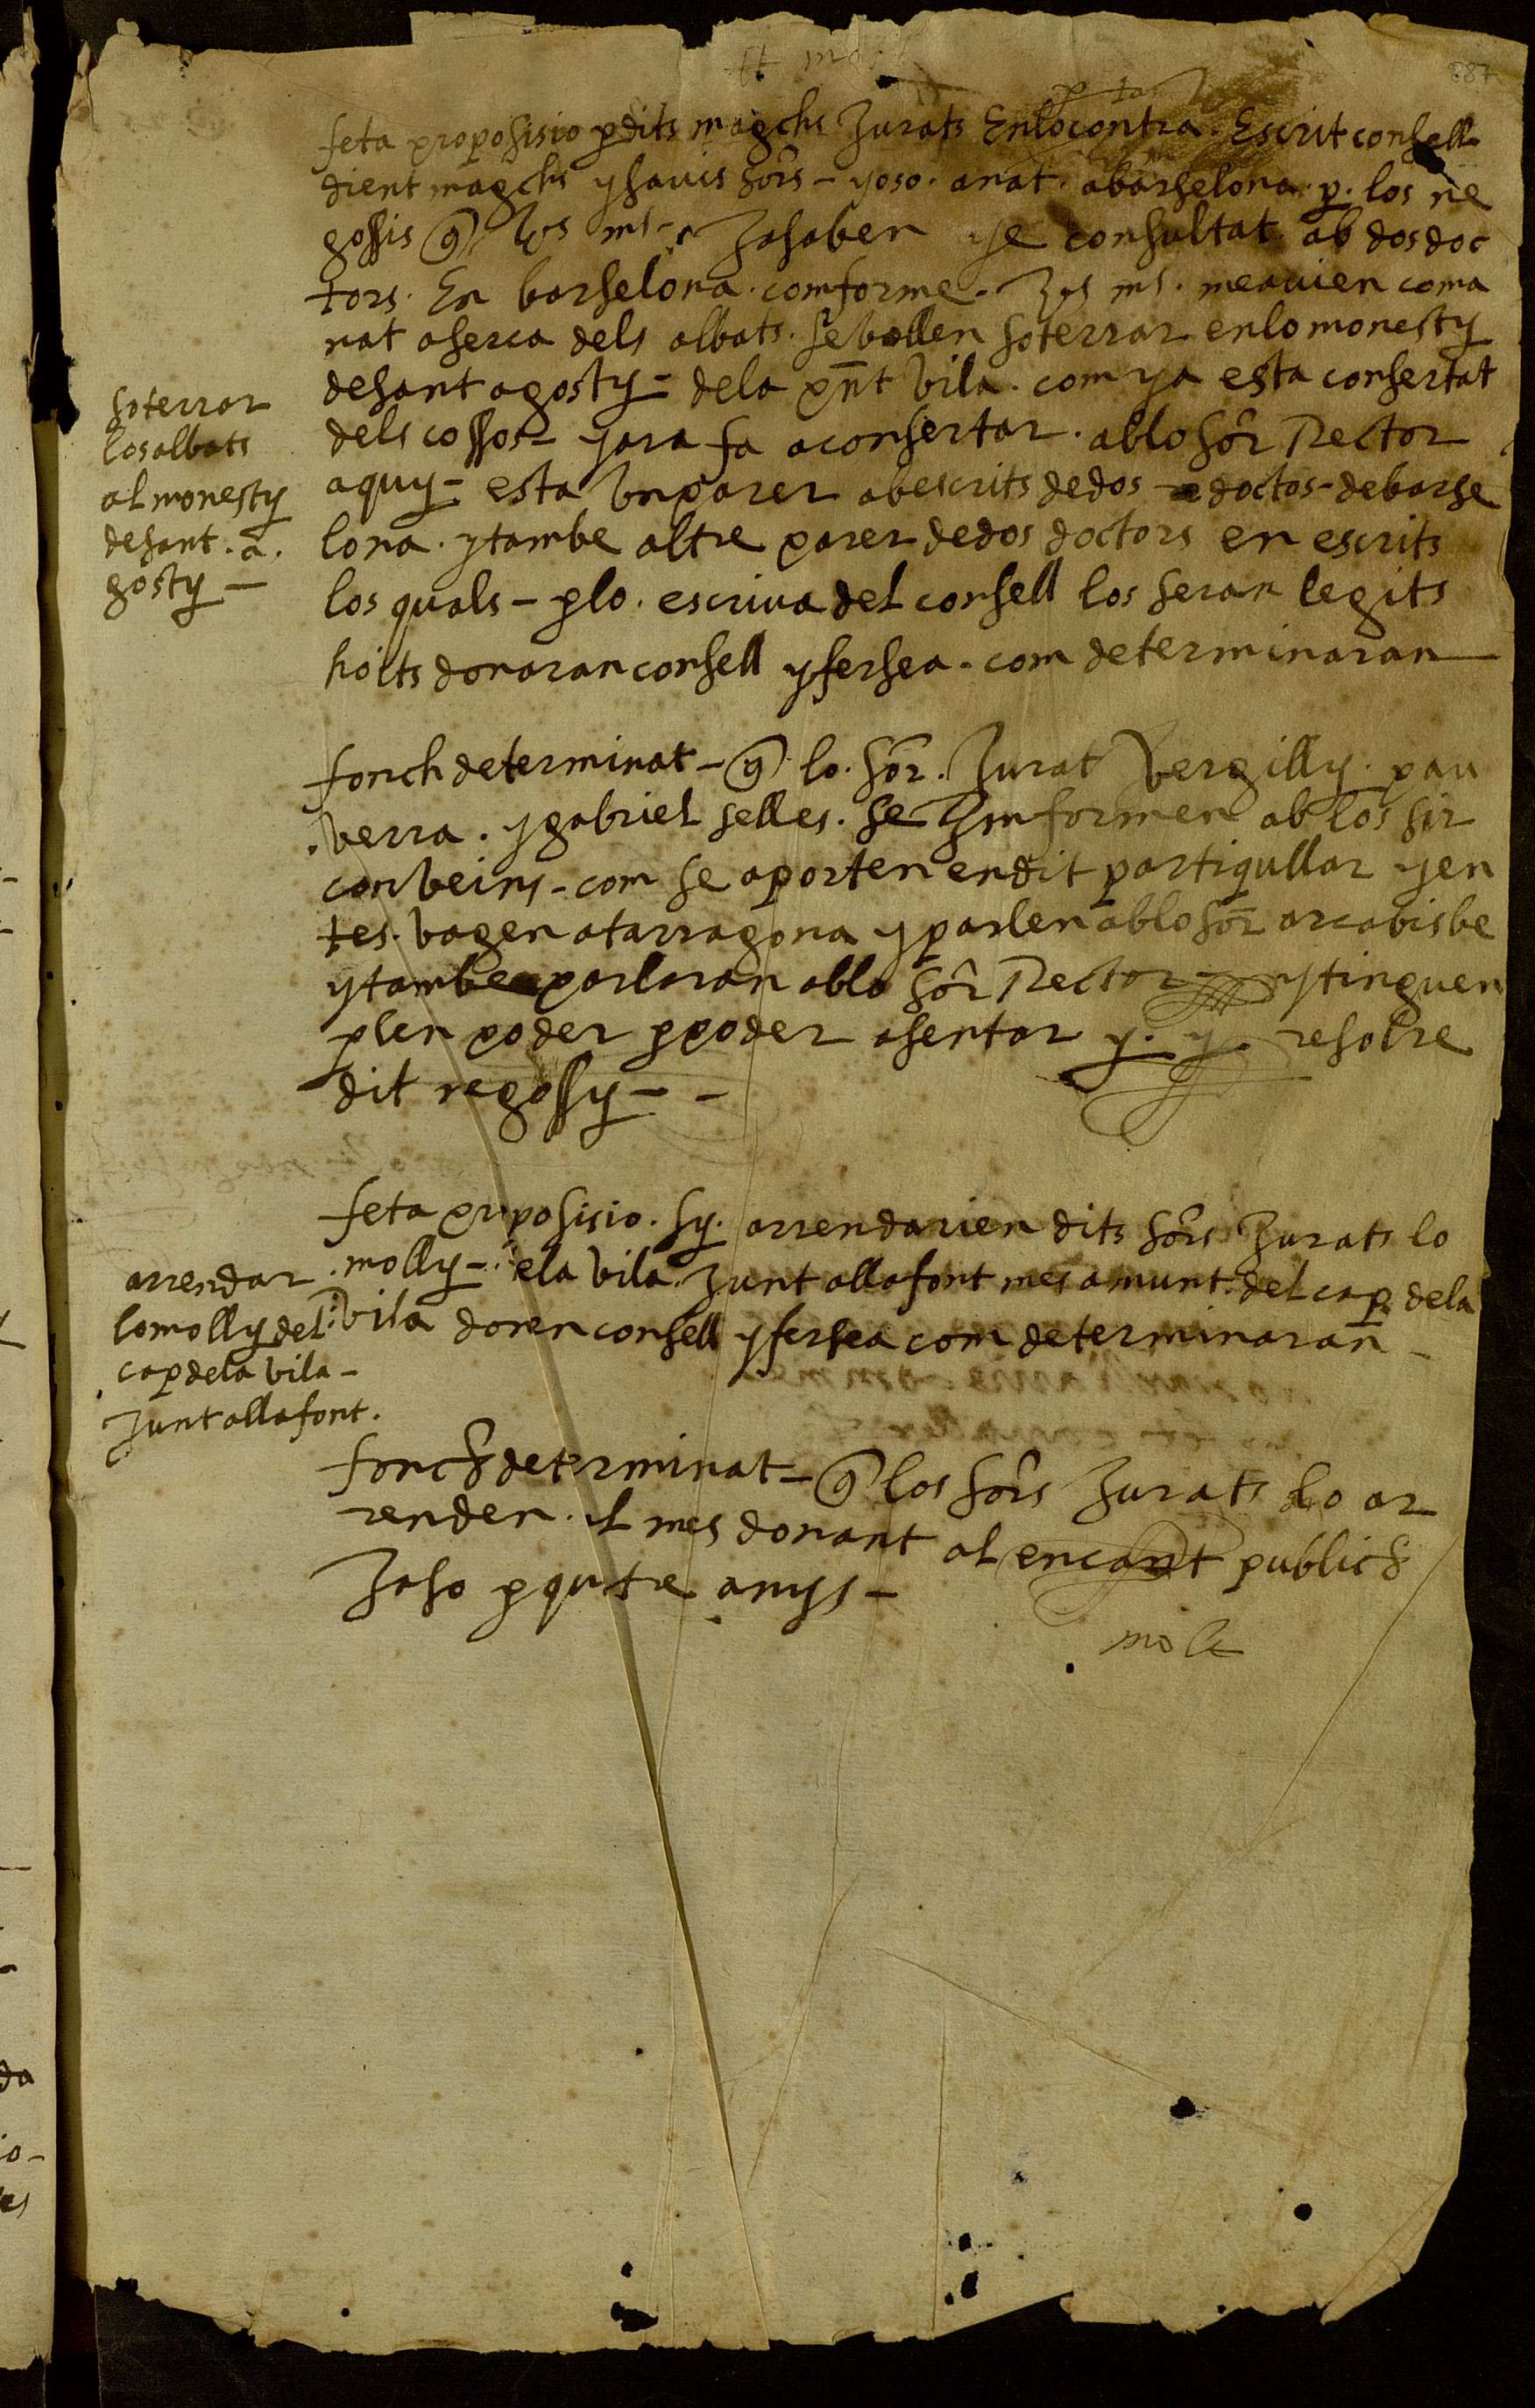 887
feta proposisio p dits magchs Jurats En lo contra Escrit consell
dient magchs y savis sors - yo so . anat . a barselona . p . los ne
gossis q los ms Ja saben y e consultat ab dos doc
tors . En barselona . comforme . ms . me avien coma
nat aserca dels albats . se vollen soterrar en lo monesty
de sant agosty - de la pnt vila . com ya esta consertat
dels cossos - y ara fa a consertar . ab lo sor Rector
aquy - esta un parer ab escrits de dos doctos - de barse
lona . y tambe altre parer de dos doctors en escrits
los quals - p lo . escriva del consell los seran legits
hoits donaran consell y fersea - com determinaran
soterrar
los albats
al monesty
de sant . a .
gosty -
fonch determinat - q lo . sor . Jurat Vergilly . pau
verra . y gabriel selles . se Imformen ab los sir
conveins - com se aporten en dit partiqullar y en
tes . vagen a tarragona y parlen ab lo sor arcabisbe
y tambe parlaran ab lo sor Rector - y tinguen
plen poder p poder asentar y . y . resolre
dit negossy - -
feta proposisio . sy . arrendarien dits sors Jurats lo
molly - de la vila . Junt alla font mes amunt . del cap de la
vila donen consell y fersea com determinaran -
arrendar
lo molly del
cap de la vila -
Junt alla font .
fonch determinat - q los sors Jurats lo ar
renden . al mes donant al encant publich
Jaso p qutre anys -